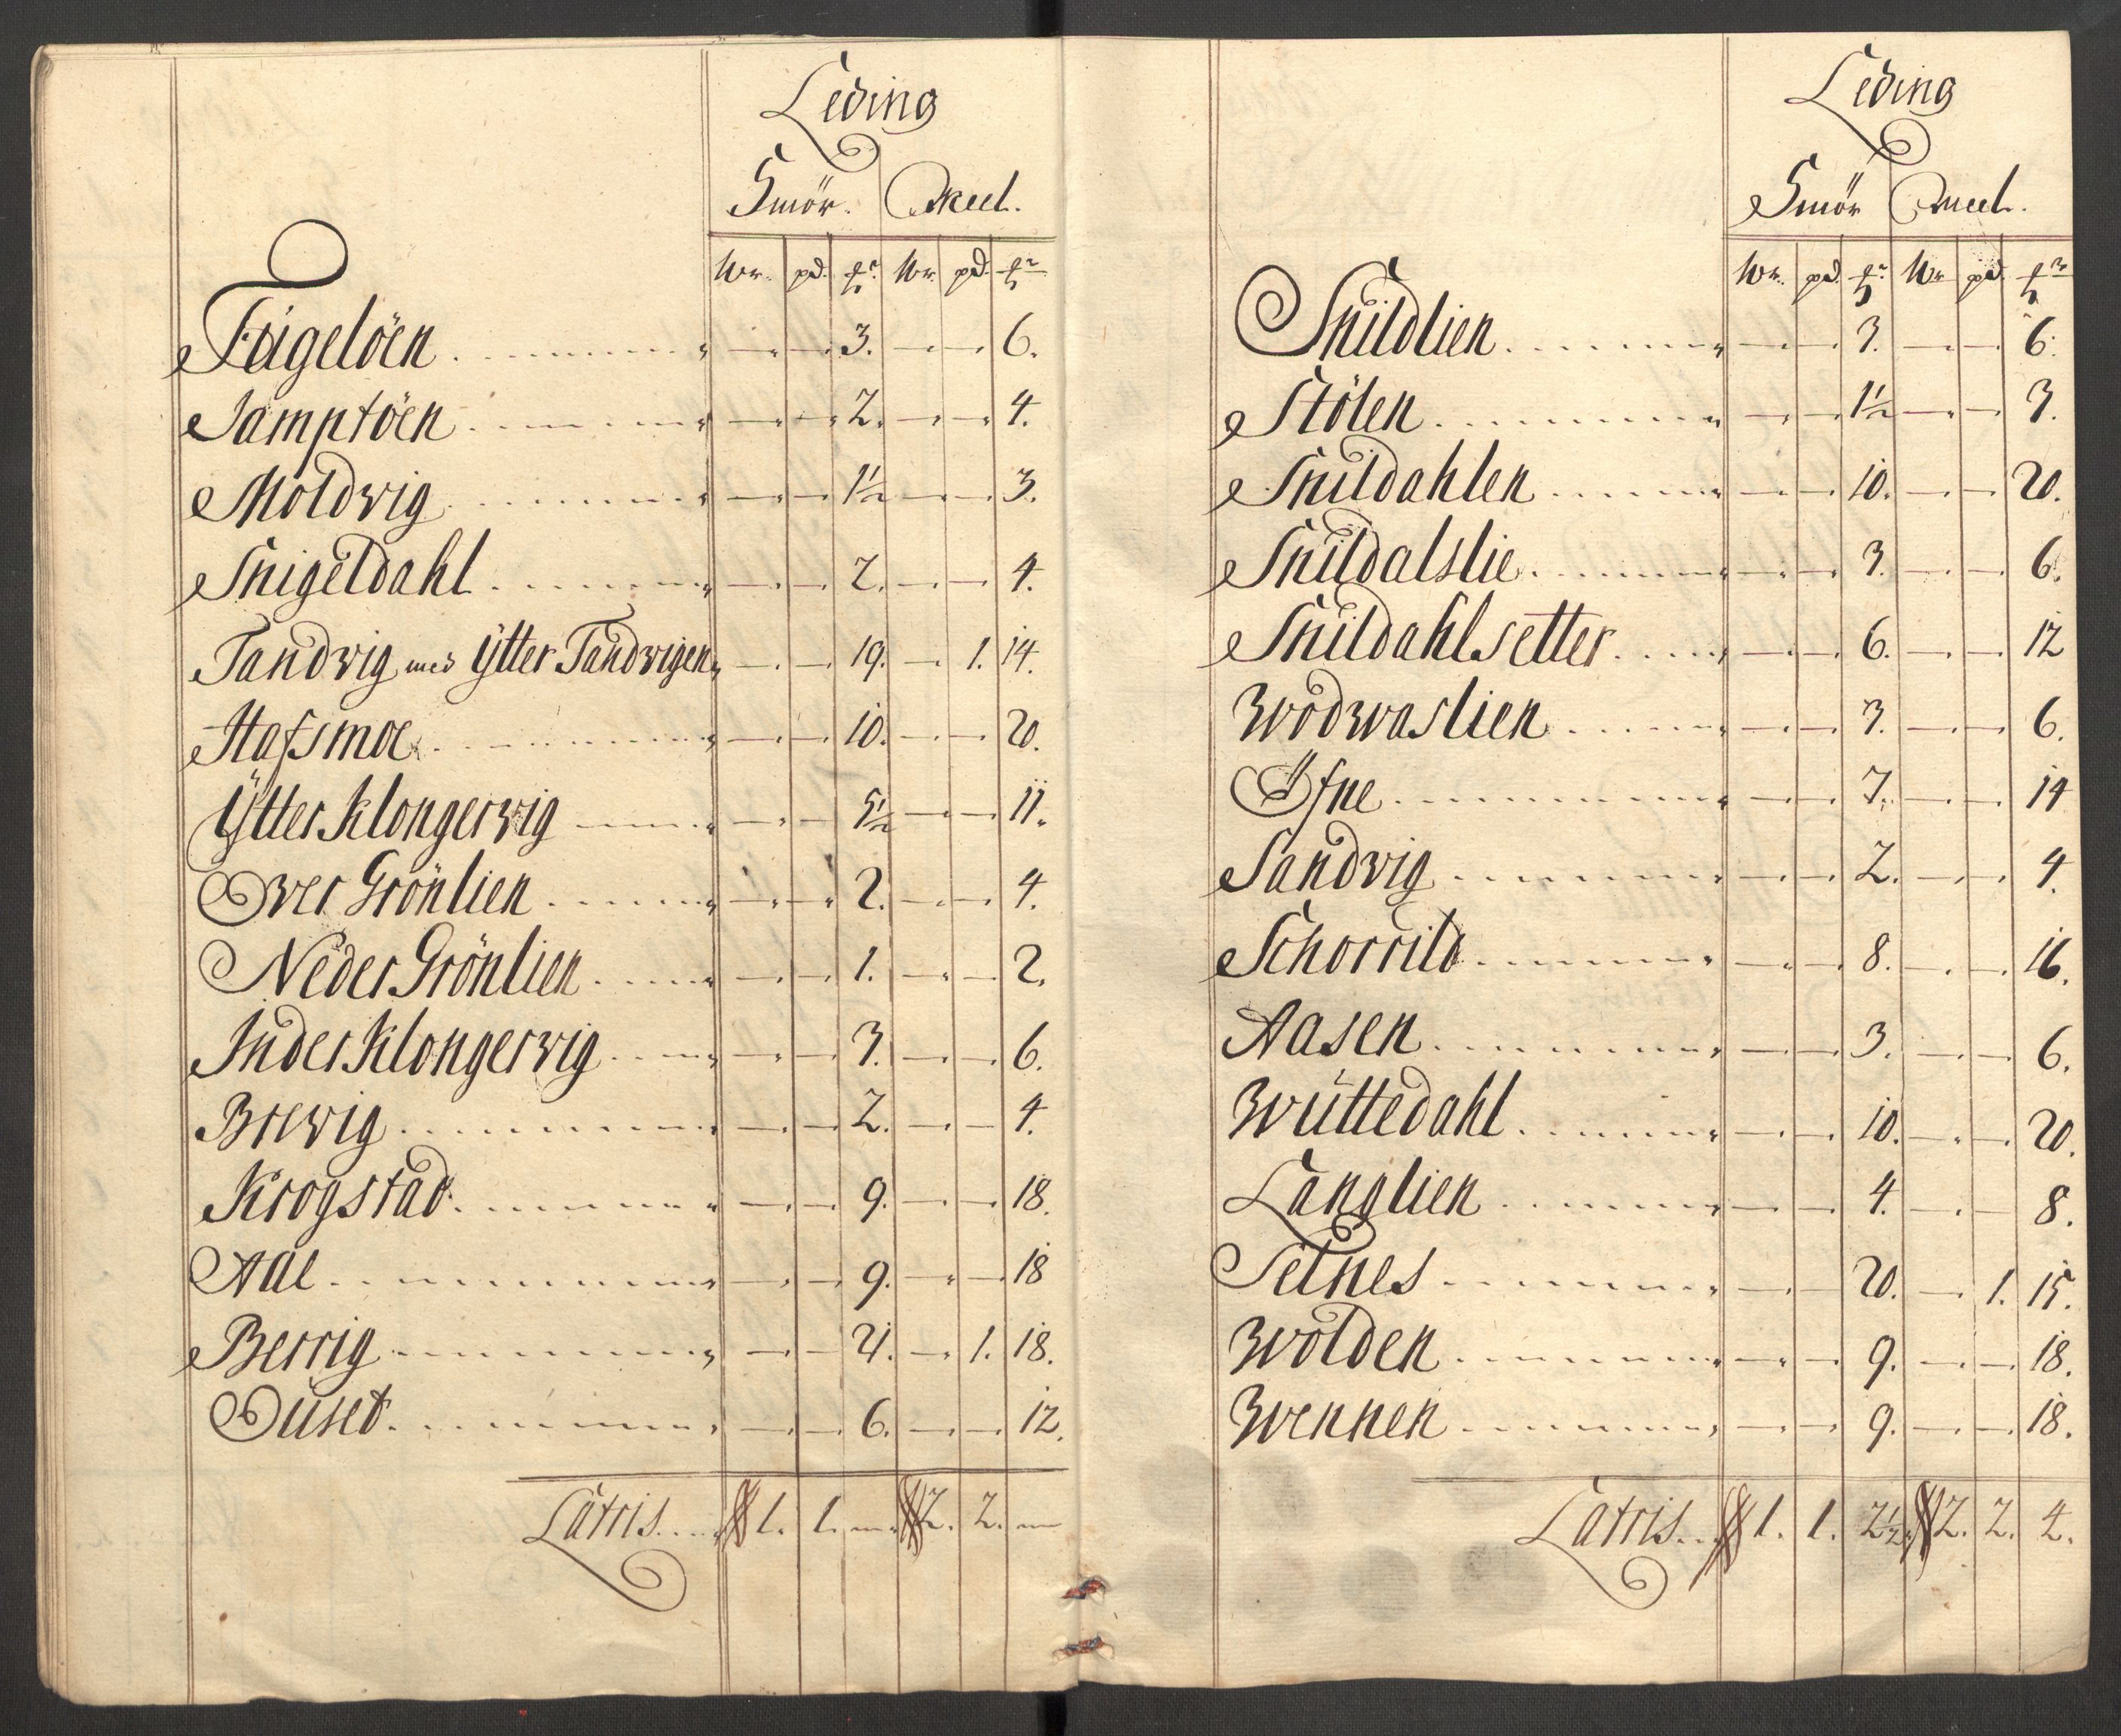 Leding
Smör. Meel.
Wr. pd. ℔r. Wr. pd. ℔r
Fugelöen . . . . . . 3. 6.
Samptöen . . . . . . 2. 4.
Moldvig . . . . . . 1½ 3.
Snigeldahl . . . . . . 2. 4.
Tandvig med Ytter Tandvigen 19. 1. 14.
Hafsmoe . . . . . . 10. 20.
Ytter Klongervig 5½ 11.
Over Grönlien . . . . . . 2. 4.
Neder Grönlien . . . . . . 1. 2.
Inder Klongervig . . . . . . 3. 6.
Brevig . . . . . . 2. 4.
Krogstad . . . . . . 9. 18.
Aae . . . . . . 9. 18
Berrig . . . . . . 21. 1. 18.
Ouset . . . . . . 6. 12.
Latris . . . . 1. 1. 2. 2.
Leding
Smör Meel.
Wr. pd. ℔r. Wr pd. ℔r
Snildlien . . . . . . 3. 6.
Stölen . . . . . . 1½ 3.
Snildahlen . . . . . . 10. 20.
Snildalslie . . . . . . 3. 6.
Snildahlsetter . . . . . . 6. 12
Wodwaslien . . . . . . 3. 6.
Öfne . . . . . . 7. 14
Sandvig . . . . . . 2. 4.
Schorrild . . . . . . 8. 16.
Aasen . . . . . . 3. 6.
Wüttedahl . . . . . . 10. 20.
Langlien . . . . . . 4. 8.
Selnes . . . . . . 20. 1. 15.
Wolden . . . . . . 9. 18.
Wennen . . . . . . 9. 18.
Latris . . . 1. 1. 2½ 2. 2. 4.